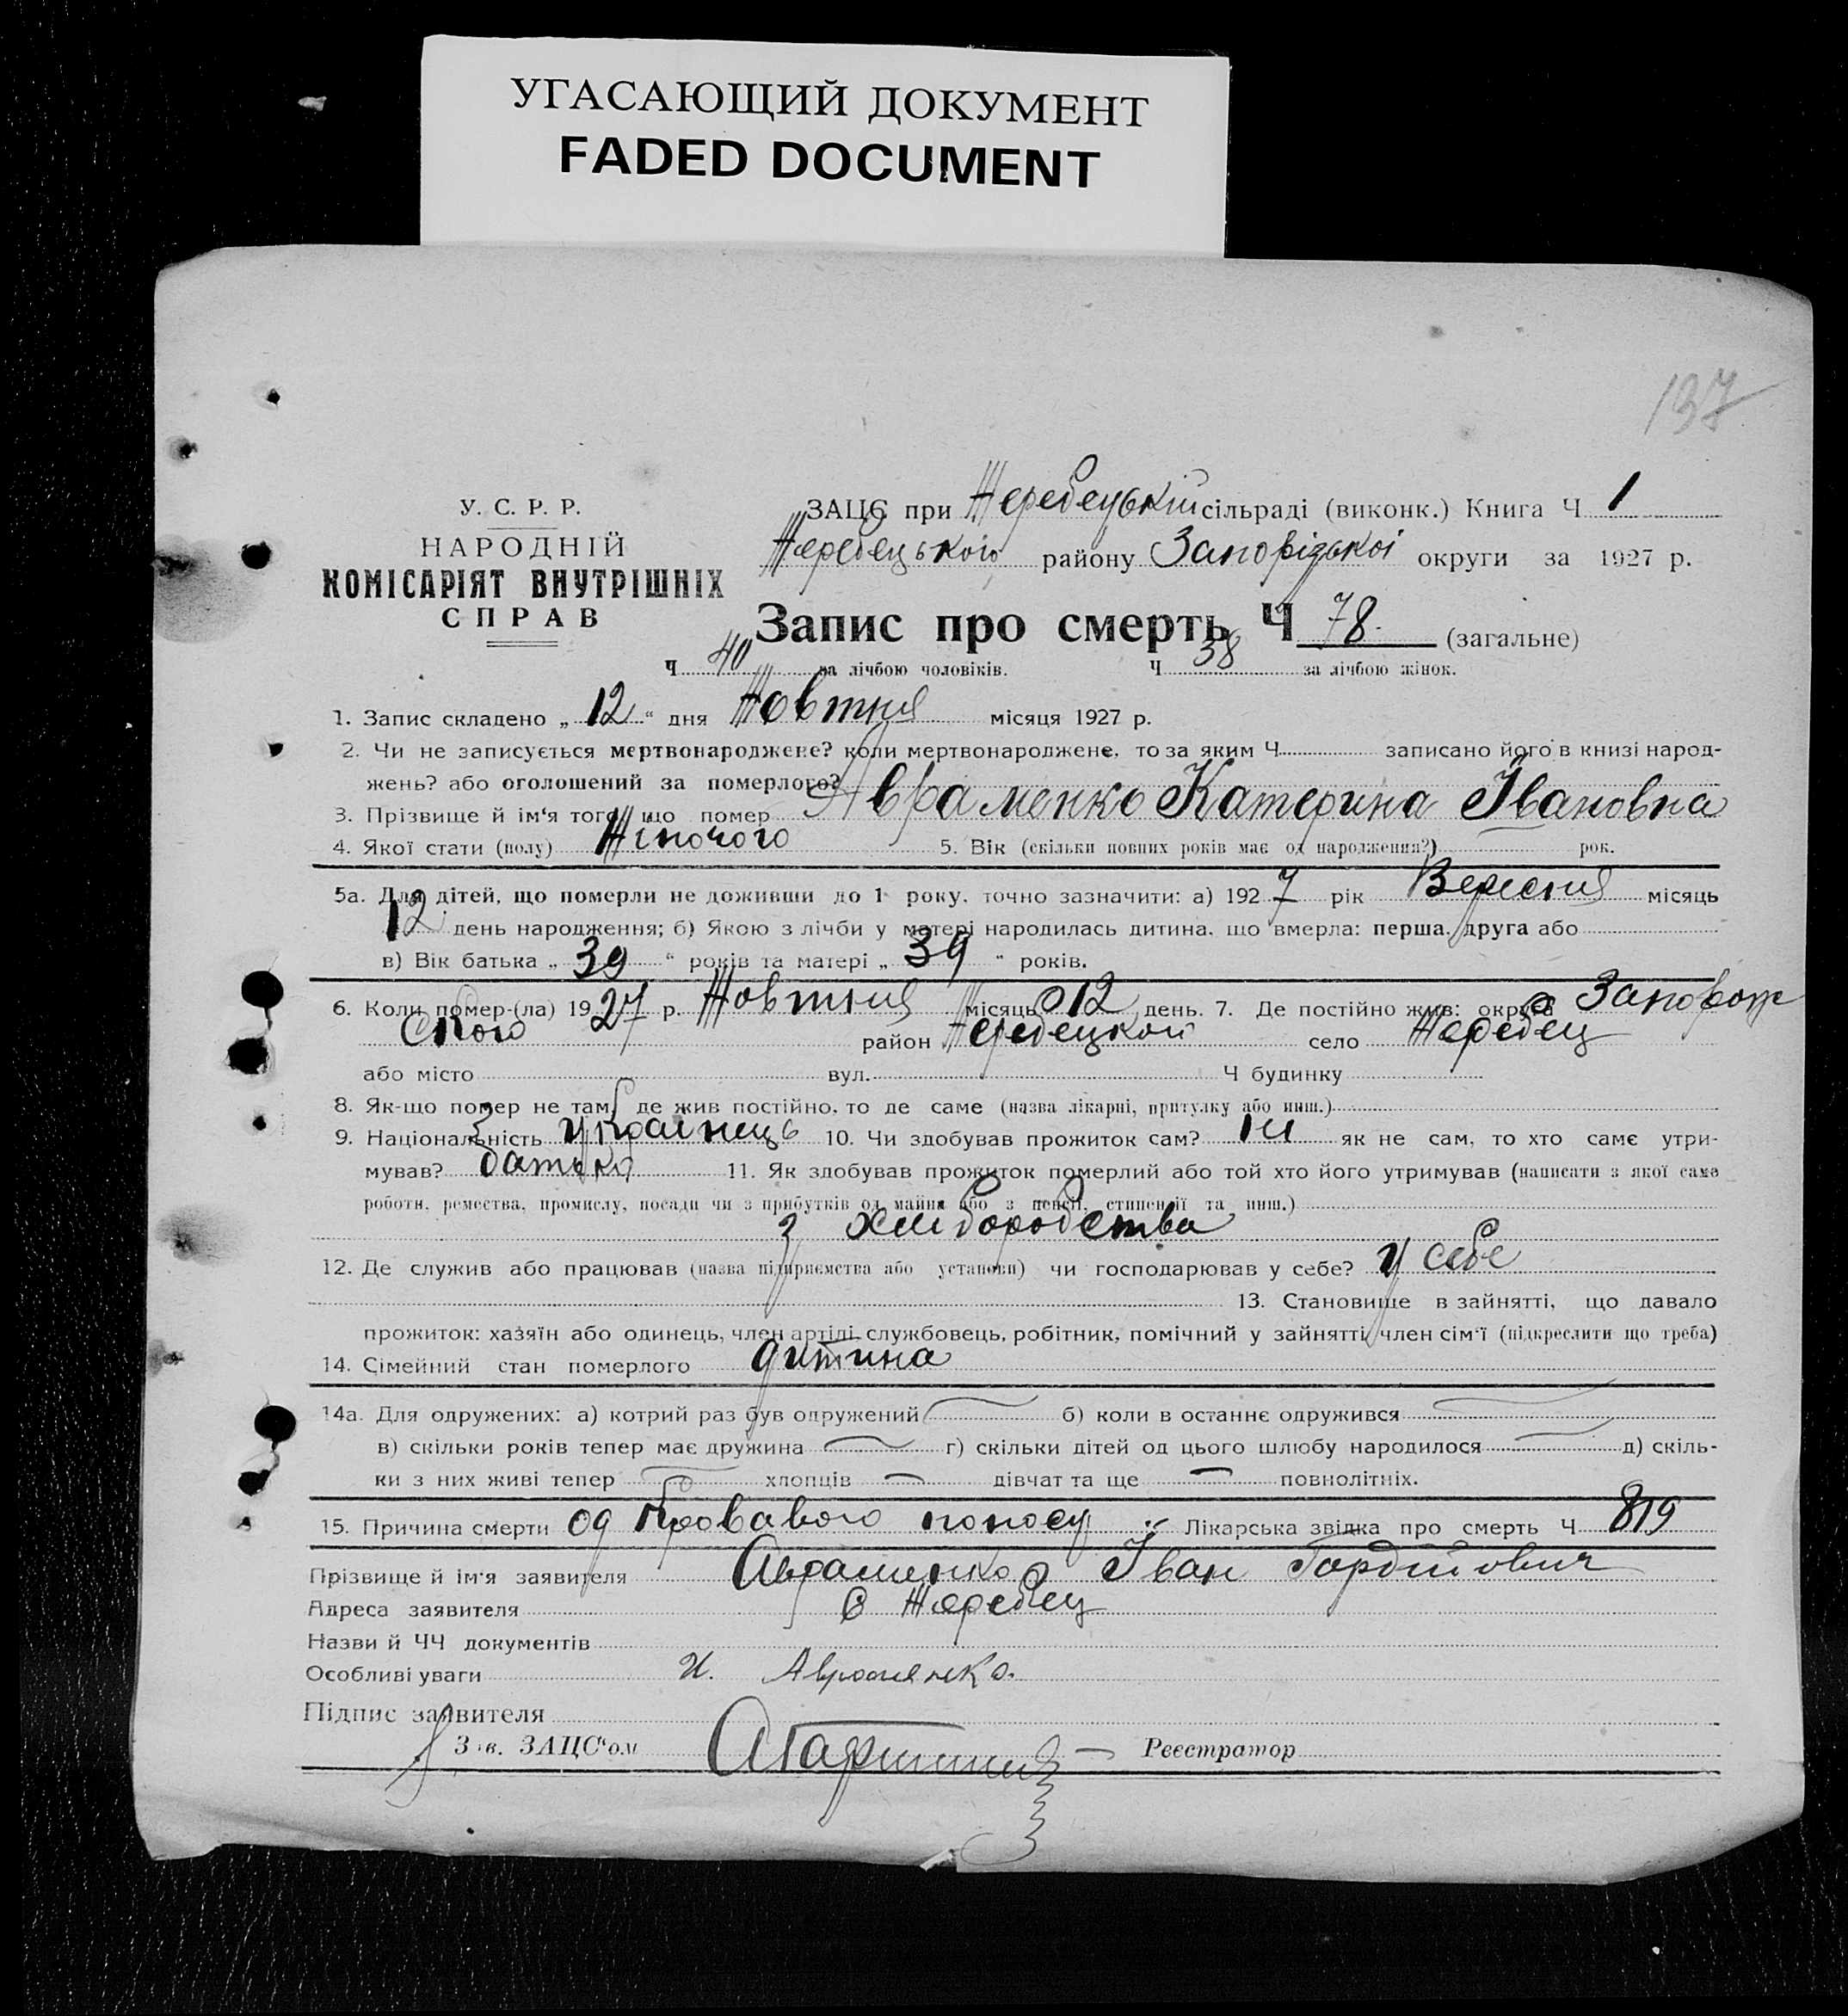 УГАСАЮЩИЙ ДОКУМЕНТ
FADED DOCUMENT
137
У. С. Р. Р.
НАРОДНІЙ
КОМІСАРІЯТ ВНУТРІШНІХ
СПРАВ
ЗАЦС при Жеребецькій сільраді (виконк.) Книга Ч 1
Жеребецького району Запорізької округи за 1927 р.
Запис про смерть Ч 78. (загальне)
Ч 40 за лічбою чоловіків. Ч 38 за лічбою жінок.
1. Запис складено „ 12 “ дня Жовтня місяця 1927 р.
2. Чи не записується мертвонароджене? коли мертвонароджене, то за яким Ч записано його в книзі народ-
жень? або оголошений за померлого?
3. Прізвище й ім‘я того, що помер Авраменко Катерина Івановна
4. Якої стати (полу) Жіночого 5. Вік (скільки повних років має од народження?) рок.
5а. Для дітей, що померли не доживши до 1 року, точно зазначити: а) 1927 рік Вересня місяць
12 день народження; б) Якою з лічби у матері народилась дитина, що вмерла: перша, друга або
в) Вік батька „ 39 “ років та матері „ 39 “ років.
6. Коли помер-(ла) 1927 р. Жовтня місяць 12 день. 7. Де постійно жив: округа Запорож
ского район Жеребецкого село Жеребец
або місто вул. Ч будинку
8. Як-що помер не там, де жив постійно, то де саме (назва лікарні, притулку або инш.)
9. Національність Українець 10. Чи здобував прожиток сам? Ні як не сам, то хто саме утри-
мував? батько 11. Як здобував прожиток померлий або той хто його утримував (написати з якої саме
роботи, ремества, промислу, посади чи з прибутків од майна або з пенсії, стипендії та инш.)
з хліборобства
12. Де служив або працював (назва підприємства або установи) чи господарював у себе? у себе
13. Становище в зайнятті, що давало
прожиток: хазяїн або одинець, член артілі, службовець, робітник, помічний у зайнятті, член сім‘ї (підкреслити що треба)
14. Сімейний стан померлого дитина
14а. Для одружених: а) котрий раз був одружений б) коли в останнє одружився
в) скільки років тепер має дружина г) скільки дітей од цього шлюбу народилося д) скіль-
ки з них живі тепер хлопців дівчат та ще повнолітніх.
15. Причина смерти од Кровавого поносу Лікарська звідка про смерть Ч 819
Прізвище й ім‘я заявителя Авраменко Іван Гордійович
Адреса заявителя с Жеребец
Назви й ЧЧ документів
Особливі уваги И. Авроменко.
Підпис заявителя
Зав. ЗАЦС‘ом Реєстратор